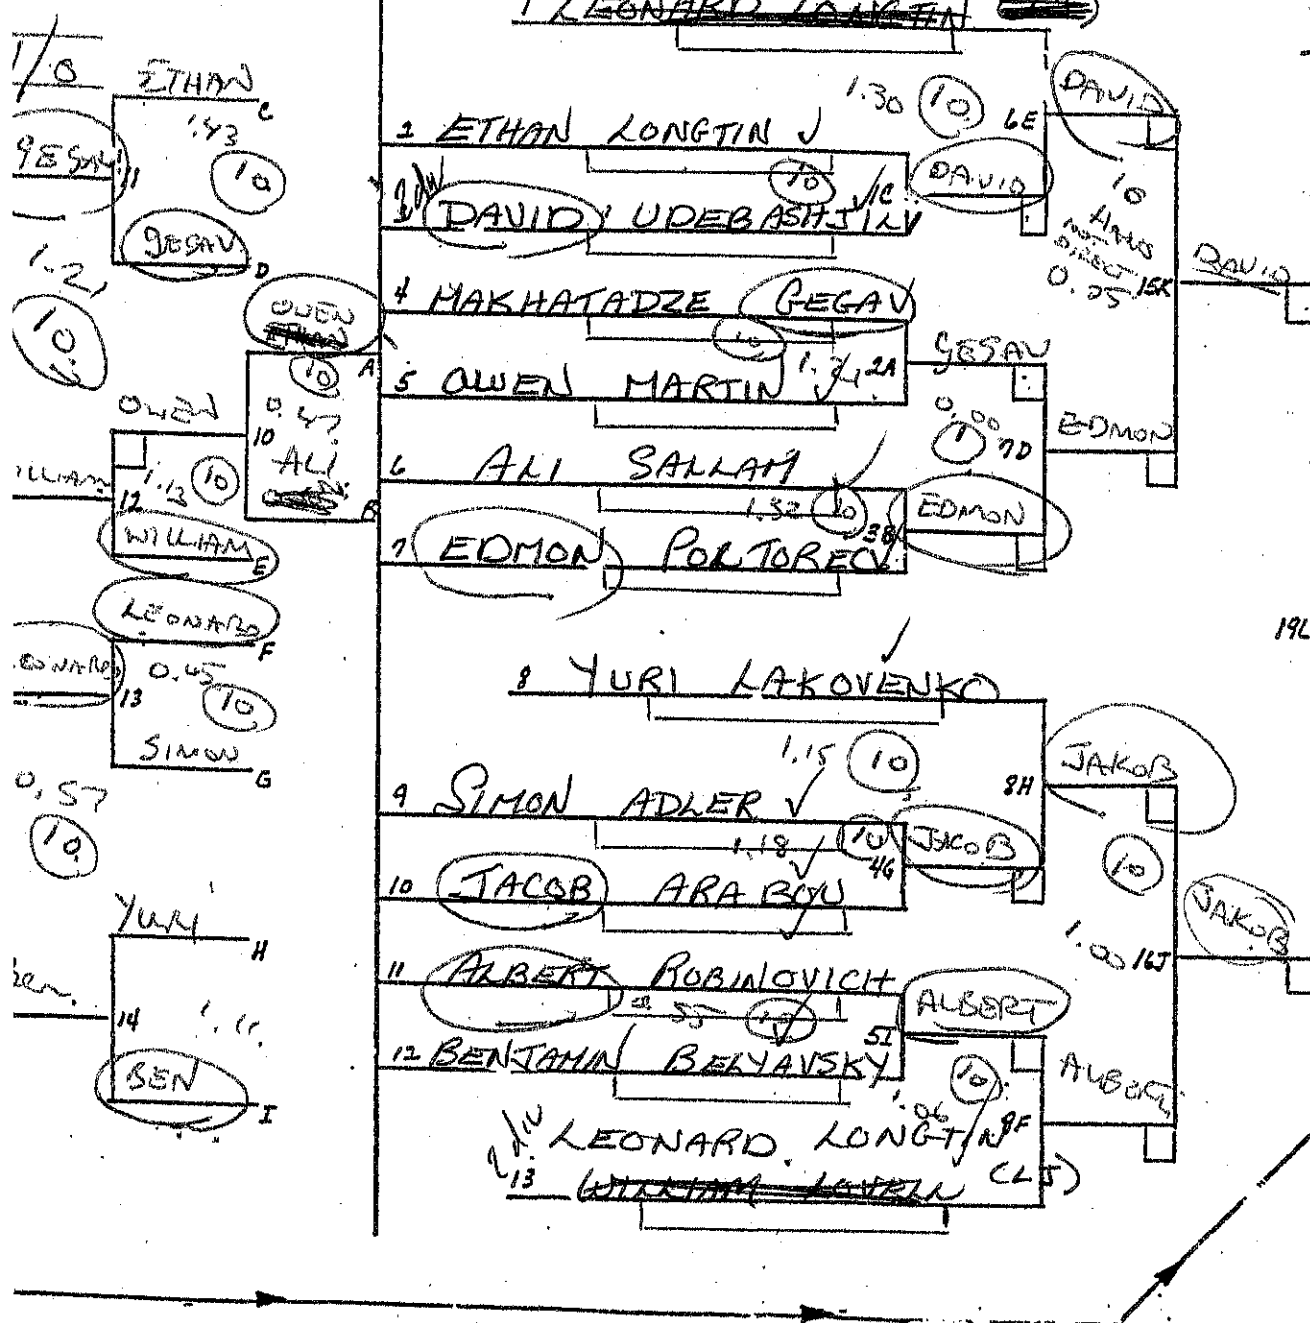 1 LEONARD LONGTIN
1/8
ETHAN
C
1.43
10
GEGAV
11
GEGAV
D
1.21
10
OWEN
ETHAN
A
10
0.47
10
ALI
B
OWEN
1.13
10
12
WILLIAM
E
LEONARD
F
13
0.45
10
SIMON
G
0.57
10
YURI
H
14
1.11
BEN
I
2 ETHAN LONGTIN
1.30 10
6E
DAVID
10
1C
DAVID
2 div
3 DAVID UDEBASHJILV
10
HANS
NOT
DIRECT
0.05 15K
DAVID
4 MAKHATADZE GEGAV
10
1.24 2A
GEGAV
5 OWEN MARTIN
0.00
10
7D
EDMON
6 ALI SALLAM
1.32 10
3B
EDMON
7 EDMON PORTORECV
19L
8 YURI LAKOVENKO
1.15 10
8H
JAKOB
9 SIMON ADLER
1.18 10
4G
JAKOB
10
10 JACOB ARABOV
1.00 16J
JAKOB
11 ALBERT ROBINOVICH
55 10
5I
ALBERT
12 BENJAMIN BELYAVSKY
1.06 10
9F
ALBERT
2 div
LEONARD LONGTIN
(LJ)
13 WILLIAM LOVELL